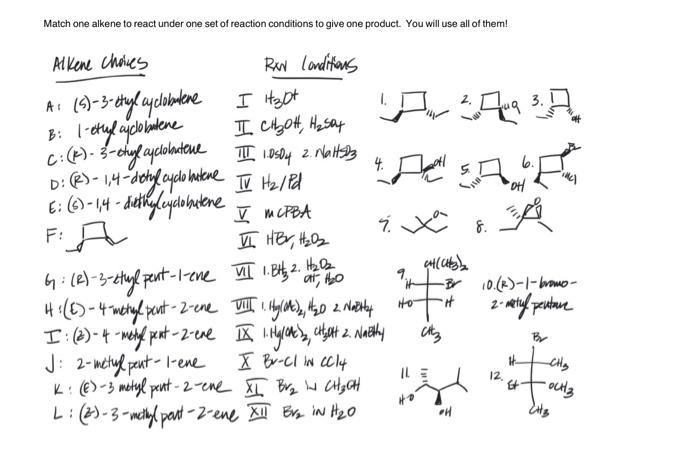 Match one alkene to react under one set of reaction conditions to give one product. You will use all of them!
Alkene Choices
Rxn Conditions
A: (S)-3-ethyl cyclobutene
B: 1-ethylcyclobutene
C: (R)-3-ethylcyclobutene
D: (R)-1,4-diethylcyclobutene
E: (S)-1,4-diethylcyclobutene
F:
G: (R)-3-ethyl pent-1-ene
H: (E)-4-methyl pent-2-ene
I: (Z)-4-methyl pent-2-ene
J: 2-methyl pent-1-ene
K: (E)-3 methyl pent-2-ene
L: (Z)-3-methyl pent-2-ene
I H3O+
II CH3OH, H2SO4
III 1. OsO4 2. NaHSO3
IV H2/Pd
V mCPBA
VI HBr, H2O2
VII 1. BH3 2. H2O2 OH, H2O
VIII 1. Hg(OAc)2, H2O 2. NaBH4
IX 1. Hg(OAc)2, CH3OH 2. NaBH4
X Br-Cl in CCl4
XI Br2 in CH3OH
XII Br2 in H2O
1.
2.
3.
OH
4.
OH
5.
OH
6.
7.
O
8.
9.
CH(CH3)2
H
Br
HO
H
CH3
10. (R)-1-bromo-
2-methyl pentane
11.
HO
OH
12.
Br
H
CH3
Et
OCH3
CH3